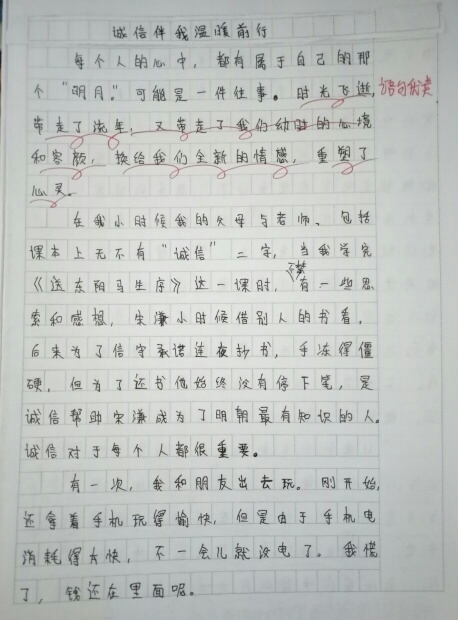 诚信伴我温暖前行
每个人的心中，都有属于自己的那
个"明月。"可能是一件往事。时光飞逝，
语句优美
带走了流年；又带走了我们幼时的心境
和容颜，换给我们全新的情感，重塑了
心灵。
在我小时候我的父母与老师、包括
课本上无不有"诚信"二字，当我学完
《送东阳马生序》这一课时，不禁有一些思
索和感想，宋濂小时候借别人的书看，
后来为了信守承诺连夜抄书，手冻得僵
硬，但为了还书他始终没有停下笔，是
诚信帮助宋濂成为了明朝最有知识的人。
诚信对于每个人都很重要。
有一次，我和朋友出去玩。刚开始，
还拿着手机玩得愉快，但是由于手机电
消耗得太快，不一会儿就没电了。我慌
了，钱还在里面呢。